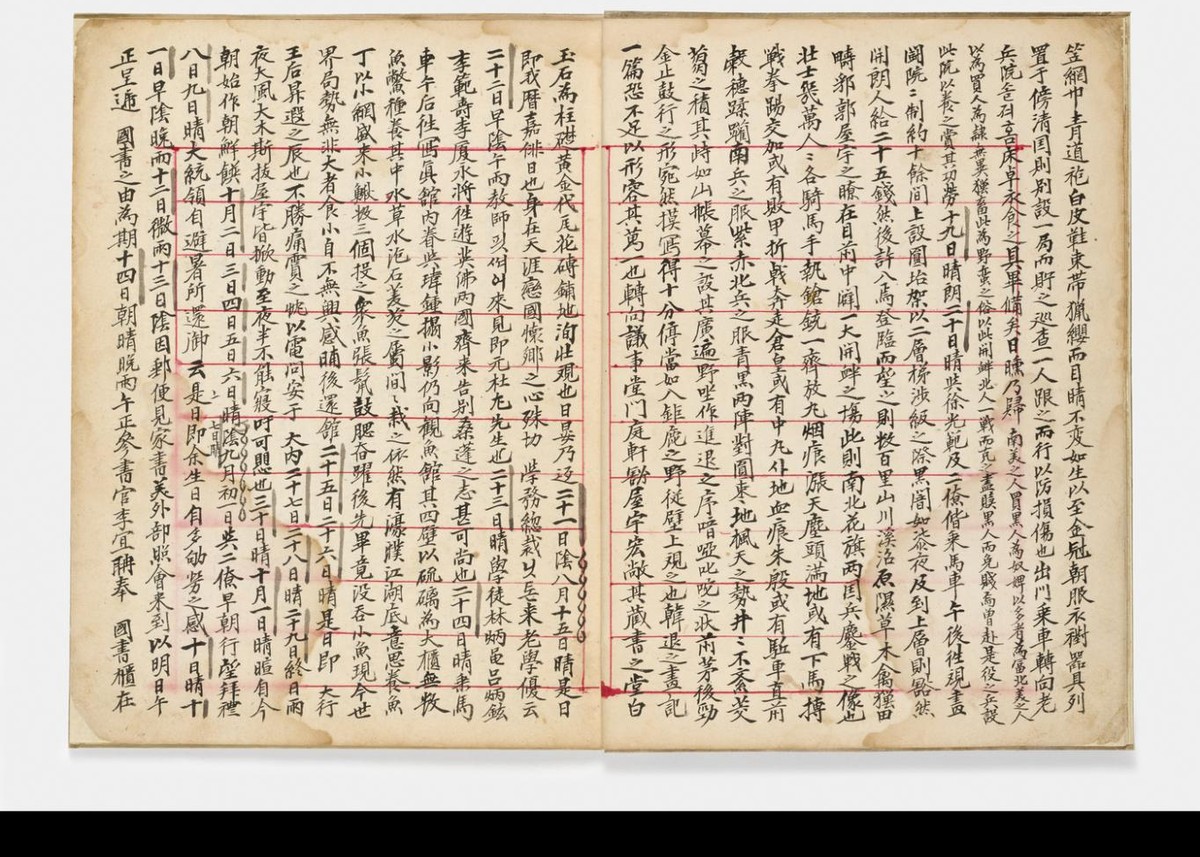 笠網巾青道袍白皮鞋束帶獵纓面目睛不變如生以至金冠朝服衣樹器具列
置于傍清国則別設一局而貯之巡查一人跟之而行以防損傷也出門乘車轉向老
兵院 床卓衣食之具畢備矣日曛乃歸 南美之人買黑人為奴婢以多者為富北美之人
以為買人為隷無異獏畜此為野蛮之俗以此開衅北人一戰而克之盡贖黑人而免賤為曾赴是役之兵設
此院以養之賞其功勞十九日晴朗二十日晴與徐光範及二僚偕乘馬車午後徃現畫
閣院院制約十餘間上設圓坮架以二層梯涉級之際黑闇如漆夜及到上層則豁然
開朗人給二十五錢然後許入焉登臨而望之則数百里山川溪沼原隰草木禽獵田
疇郛郭屋宇之瞭在目前中闢一大開衅之場此則南北花旗两国兵鏖戰之像也
壮士幾萬人人各騎馬手執鎗銃一齊放丸烟痕漲天塵頭滿地或有下馬摶
戦拳踢交加或有敗甲折戟奔走倉皇或有中丸仆地血痕朱殷或有駈車直前
穀穗蹂躪南兵之服紫赤北兵之服青黑两陣對圓柬地楓天之勢井井不紊芡
蒭之積其峙如山帳幕之設其廣遍野坐作進退之序喑啞叱咤之状前茅後勁
金止鼓行之形宛然摸寫得十分停當如入鉅鹿之野從壁上观之也韓退之畫記
一篇恐不足以形容其萬一也轉向議事堂門庭軒豁屋宇宏敞其藏書之堂白
玉石為柱礎黄金代尾花磚鋪地洵壮現也日晏乃还二十一日陰八月十五日晴是日
即我曆嘉俳日也身在天涯戀國懷鄉之心殊切 學務總裁 来老學優云
二十二日早陰午雨教師 来見即元杜九先生也二十三日晴學徒林炳龜吕炳鉉
李範壽李厦永將徃遊英佛两國齊来告別桑蓬之志甚可尚也二十四日晴乘馬
車午后徃寫眞舘内眷與瑋鍾搨小影仍向觀魚舘其四壁以硫磠為大櫃無数
魚鱉種養其中水草水泡石菱茇之屬间间栽之依然有濠濮江湖底意思養魚
丁以小網盛来小鰍扱三個投之衆魚張鬣鼓腮奋躍後先畢竟没吞小魚現今世
界局勢無非大者食小自不無興感晡後還舘二十五日二十六日晴是日即 大行
王后昇遐之辰也不勝痛霣之 以電问安于 大内二十七日二十八日晴二十九日終日雨
夜大風大木斯拔屋宇皆掀動至夜半不能寢吁可愳也三十日晴十月一日晴暄自今
朝始作朝鮮饌十月二日三日四日五日六日晴陰九月初一日與二僚早朝行望拜禮
七日晴
八日九日晴大統領自避暑所還御 云是日即余生日自念劬勞之感十日晴十
一日早陰晚雨十二日微雨十三日陰因郵便見家書美外部照會来到以明日午
正呈遞 國書之由為期十四日朝晴晚雨午正參書官李宜聃奉 國書櫃在